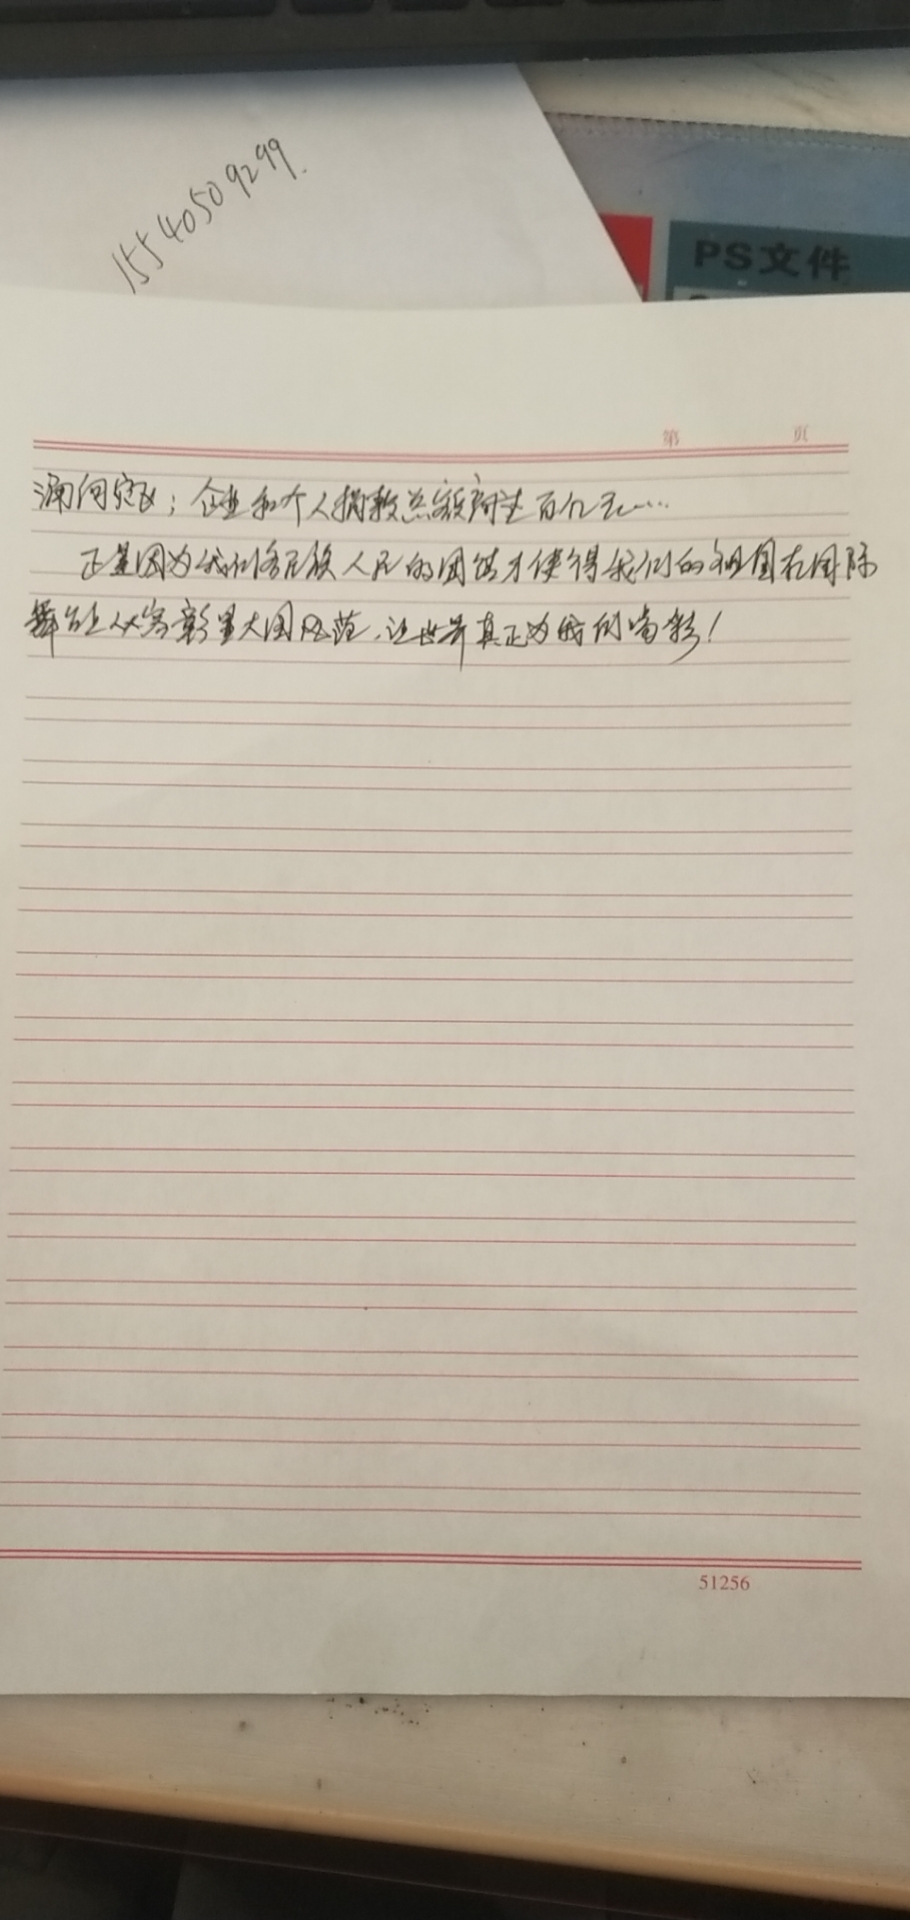 15540509299
PS文件
第 页
涌向灾区；企业和个人捐款总额高达百亿元……
正是因为我们各民族人民的团结才使得我们的祖国在国际
舞台上从容彰显大国风范，让世界真正为我们喝彩！
51256